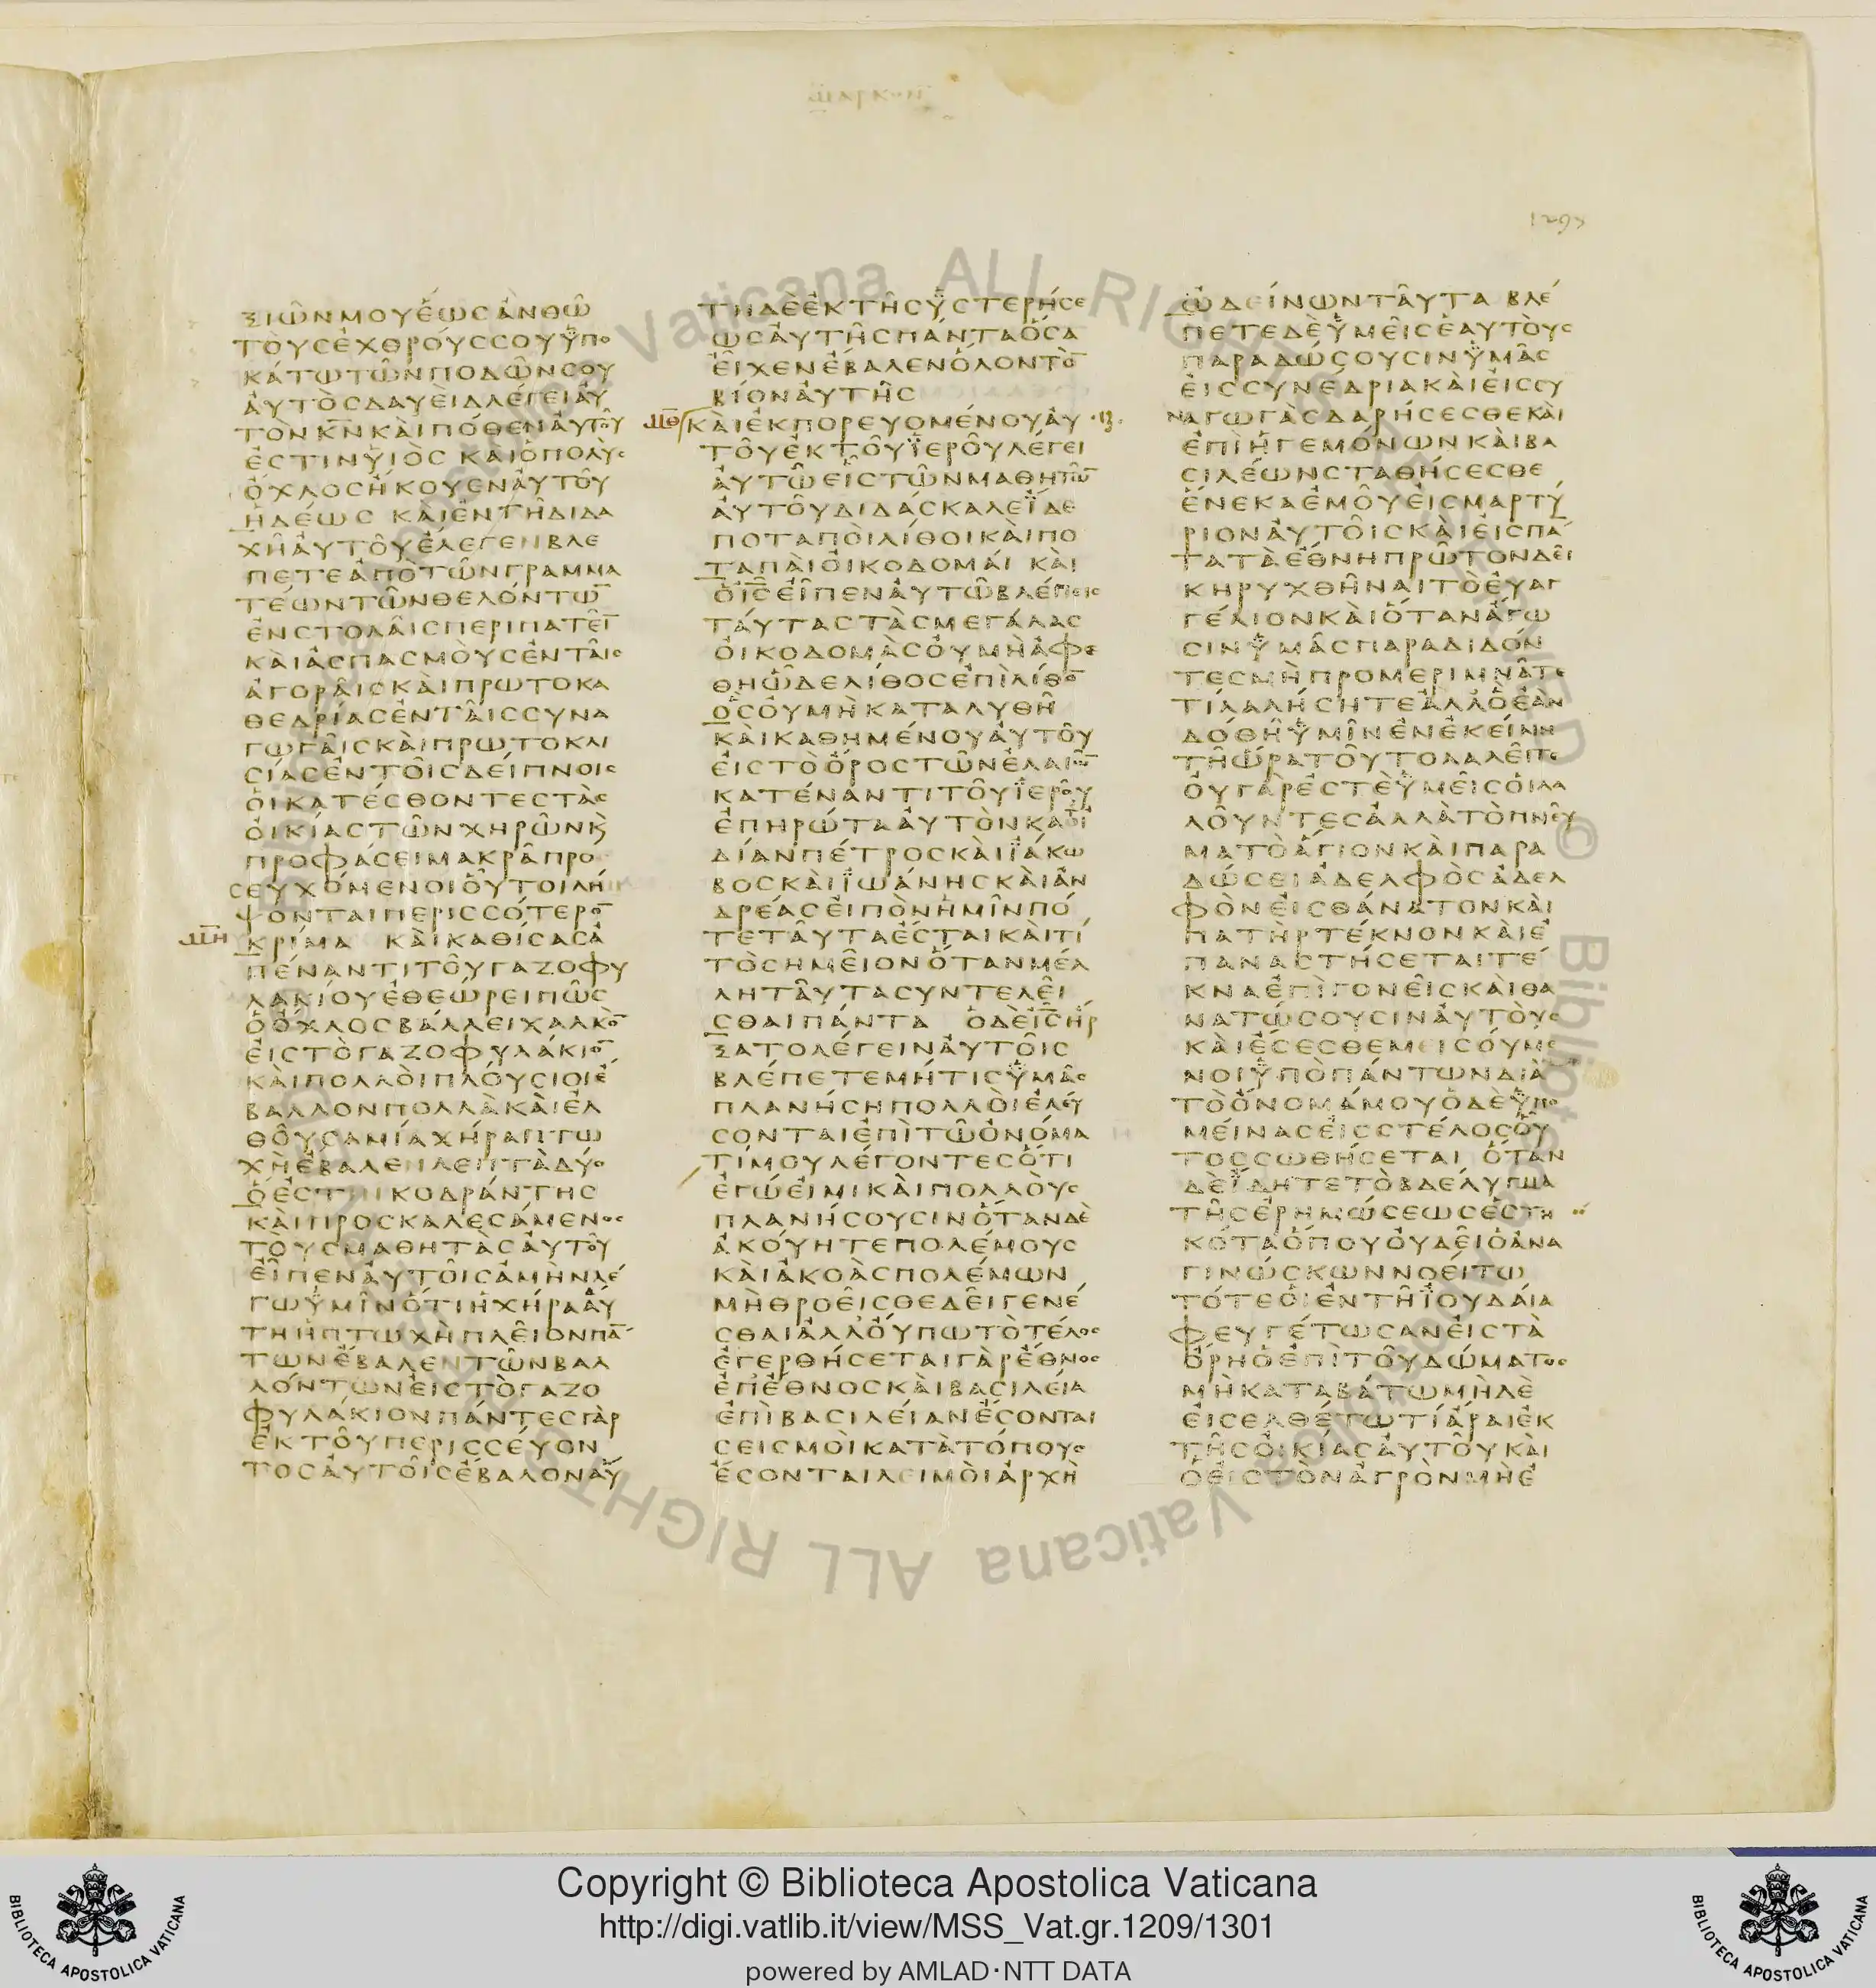 μαρκον
1295
ΞΙΩΝΜΟΥΕΩϹΑΝΘΩ
ΤΟΥϹΕΧΘΡΟΥϹϹΟΥΥΠΟ
ΚΑΤΩΤΩΝΠΟΔΩΝϹΟΥ
ΑΥΤΟϹΔΑΥΕΙΔΛΕΓΕΙΑΥ
ΤΟΝΚ̅Ν̅ΚΑΙΠΟΘΕΝΑΥΤΟΥ
ΕϹΤΙΝΥΙΟϹ ΚΑΙΟΠΟΛΥϹ
ΟΧΛΟϹΗΚΟΥΕΝΑΥΤΟΥ
ΗΔΕΩϹ ΚΑΙΕΝΤΗΔΙΔΑ
ΧΗΑΥΤΟΥΕΛΕΓΕΝΒΛΕ
ΠΕΤΕΑΠΟΤΩΝΓΡΑΜΜΑ
ΤΕΩΝΤΩΝΘΕΛΟΝΤΩ̅
ΕΝϹΤΟΛΑΙϹΠΕΡΙΠΑΤΕΙ̅
ΚΑΙΑϹΠΑϹΜΟΥϹΕΝΤΑΙϹ
ΑΓΟΡΑΙϹΚΑΙΠΡΩΤΟΚΑ
ΘΕΔΡΙΑϹΕΝΤΑΙϹϹΥΝΑ
ΓΩΓΑΙϹΚΑΙΠΡΩΤΟΚΛΙ
ϹΙΑϹΕΝΤΟΙϹΔΕΙΠΝΟΙϹ
ΟΙΚΑΤΕϹΘΟΝΤΕϹΤΑϹ
ΟΙΚΙΑϹΤΩΝΧΗΡΩΝΚ
ΠΡΟΦΑϹΕΙΜΑΚΡΑΠΡΟ
ϹΕΥΧΟΜΕΝΟΙΟΥΤΟΙΛΗ
ΨΟΝΤΑΙΠΕΡΙϹϹΟΤΕΡΟ̅
ΜΗ ΚΡΙΜΑ ΚΑΙΚΑΘΙϹΑϹΑ
ΠΕΝΑΝΤΙΤΟΥΓΑΖΟΦΥ
ΛΑΚΙΟΥΕΘΕΩΡΕΙΠΩϹ
ΟΟΧΛΟϹΒΑΛΛΕΙΧΑΛΚΟ̅
ΕΙϹΤΟΓΑΖΟΦΥΛΑΚΙΟ̅
ΚΑΙΠΟΛΛΟΙΠΛΟΥϹΙΟΙΕ
ΒΑΛΛΟΝΠΟΛΛΑΚΑΙΕΛ
ΘΟΥϹΑΜΙΑΧΗΡΑΠΤΩ
ΧΗΕΒΑΛΕΝΛΕΠΤΑΔΥΟ
ΟΕϹΤΙΝΚΟΔΡΑΝΤΗϹ
ΚΑΙΠΡΟϹΚΑΛΕϹΑΜΕΝΟϹ
ΤΟΥϹΜΑΘΗΤΑϹΑΥΤΟΥ
ΕΙΠΕΝΑΥΤΟΙϹΑΜΗΝΛΕ
ΓΩΥΜΙΝΟΤΙΗΧΗΡΑΑΥ
ΤΗΗΠΤΩΧΗΠΛΕΙΟΝΠΑ̅
ΤΩΝΕΒΑΛΕΝΤΩΝΒΑΛ
ΛΟΝΤΩΝΕΙϹΤΟΓΑΖΟ
ΦΥΛΑΚΙΟΝΠΑΝΤΕϹΓΑΡ
ΕΚΤΟΥΠΕΡΙϹϹΕΥΟΝ
ΤΟϹΑΥΤΟΙϹΕΒΑΛΟΝΑΥ
ΤΗΔΕΕΚΤΗϹΥϹΤΕΡΗϹΕ
ΩϹΑΥΤΗϹΠΑΝΤΑΟϹΑ
ΕΙΧΕΝΕΒΑΛΕΝΟΛΟΝΤΟ̅
ΒΙΟΝΑΥΤΗϹ
ΜΘ ΚΑΙΕΚΠΟΡΕΥΟΜΕΝΟΥΑΥ
ΤΟΥΕΚΤΟΥΙΕΡΟΥΛΕΓΕΙ
ΑΥΤΩΕΙϹΤΩΝΜΑΘΗΤΩ̅
ΑΥΤΟΥΔΙΔΑϹΚΑΛΕΪΔΕ
ΠΟΤΑΠΟΙΛΙΘΟΙΚΑΙΠΟ
ΤΑΠΑΙΟΙΚΟΔΟΜΑΙ ΚΑΙ
ΟΙ̅Ϲ̅ΕΙΠΕΝΑΥΤΩΒΛΕΠΕΙϹ
ΤΑΥΤΑϹΤΑϹΜΕΓΑΛΑϹ
ΟΙΚΟΔΟΜΑϹΟΥΜΗΑΦΕ
ΘΗΩΔΕΛΙΘΟϹΕΠΙΛΙΘΟ̅
ΟϹΟΥΜΗΚΑΤΑΛΥΘΗ
ΚΑΙΚΑΘΗΜΕΝΟΥΑΥΤΟΥ
ΕΙϹΤΟΟΡΟϹΤΩΝΕΛΑΙΩ̅
ΚΑΤΕΝΑΝΤΙΤΟΥΙΕΡΟΥ
ΕΠΗΡΩΤΑΑΥΤΟΝΚΑΘΙ
ΔΙΑΝΠΕΤΡΟϹΚΑΙΪΑΚΩ
ΒΟϹΚΑΙΪΩΑΝΗϹΚΑΙΑΝ
ΔΡΕΑϹΕΙΠΟΝΗΜΙΝΠΟ
ΤΕΤΑΥΤΑΕϹΤΑΙΚΑΙΤΙ
ΤΟϹΗΜΕΙΟΝΟΤΑΝΜΕΛ
ΛΗΤΑΥΤΑϹΥΝΤΕΛΕΙ
ϹΘΑΙΠΑΝΤΑ ΟΔΕΙ̅Ϲ̅ΗΡ
ΞΑΤΟΛΕΓΕΙΝΑΥΤΟΙϹ
ΒΛΕΠΕΤΕΜΗΤΙϹΥΜΑϹ
ΠΛΑΝΗϹΗΠΟΛΛΟΙΕΛΕΥ
ϹΟΝΤΑΙΕΠΙΤΩΟΝΟΜΑ
ΤΙΜΟΥΛΕΓΟΝΤΕϹΟΤΙ
ΕΓΩΕΙΜΙΚΑΙΠΟΛΛΟΥϹ
ΠΛΑΝΗϹΟΥϹΙΝΟΤΑΝΔΕ
ΑΚΟΥΗΤΕΠΟΛΕΜΟΥϹ
ΚΑΙΑΚΟΑϹΠΟΛΕΜΩΝ
ΜΗΘΡΟΕΙϹΘΕΔΕΙΓΕΝΕ
ϹΘΑΙΑΛΛΟΥΠΩΤΟΤΕΛΟϹ
ΕΓΕΡΘΗϹΕΤΑΙΓΑΡΕΘΝΟϹ
ΕΠΕΘΝΟϹΚΑΙΒΑϹΙΛΕΙΑ
ΕΠΙΒΑϹΙΛΕΙΑΝΕϹΟΝΤΑΙ
ϹΕΙϹΜΟΙΚΑΤΑΤΟΠΟΥϹ
ΕϹΟΝΤΑΙΛΕΙΜΟΙΑΡΧΗ
ΩΔΕΙΝΩΝΤΑΥΤΑ ΒΛΕ
ΠΕΤΕΔΕΥΜΕΙϹΕΑΥΤΟΥϹ
ΠΑΡΑΔΩϹΟΥϹΙΝΥΜΑϹ
ΕΙϹϹΥΝΕΔΡΙΑΚΑΙΕΙϹϹΥ
ΝΑΓΩΓΑϹΔΑΡΗϹΕϹΘΕΚΑΙ
ΕΠΙΗΓΕΜΟΝΩΝΚΑΙΒΑ
ϹΙΛΕΩΝϹΤΑΘΗϹΕϹΘΕ
ΕΝΕΚΑΕΜΟΥΕΙϹΜΑΡΤΥ
ΡΙΟΝΑΥΤΟΙϹΚΑΙΕΙϹΠΑ̅
ΤΑΤΑΕΘΝΗΠΡΩΤΟΝΔΕΙ
ΚΗΡΥΧΘΗΝΑΙΤΟΕΥΑΓ
ΓΕΛΙΟΝΚΑΙΟΤΑΝΑΓΩ
ϹΙΝΥΜΑϹΠΑΡΑΔΙΔΟΝ
ΤΕϹΜΗΠΡΟΜΕΡΙΜΝΑΤΕ
ΤΙΛΑΛΗϹΗΤΕΑΛΛΟΕΑΝ
ΔΟΘΗΥΜΙΝΕΝΕΚΕΙΝΗ
ΤΗΩΡΑΤΟΥΤΟΛΑΛΕΙΤΕ
ΟΥΓΑΡΕϹΤΕΥΜΕΙϹΟΙΛΑ
ΛΟΥΝΤΕϹΑΛΛΑΤΟΠΝΕΥ
ΜΑΤΟΑΓΙΟΝΚΑΙΠΑΡΑ
ΔΩϹΕΙΑΔΕΛΦΟϹΑΔΕΛ
ΦΟΝΕΙϹΘΑΝΑΤΟΝΚΑΙ
ΠΑΤΗΡΤΕΚΝΟΝΚΑΙΕ
ΠΑΝΑϹΤΗϹΕΤΑΙΤΕ
ΚΝΑΕΠΙΓΟΝΕΙϹΚΑΙΘΑ
ΝΑΤΩϹΟΥϹΙΝΑΥΤΟΥϹ
ΚΑΙΕϹΕϹΘΕΜΕΙϹΟΥΜΕ
ΝΟΙΥΠΟΠΑΝΤΩΝΔΙΑ
ΤΟΟΝΟΜΑΜΟΥΟΔΕΥΠΟ
ΜΕΙΝΑϹΕΙϹϹΤΕΛΟϹΟΥ
ΤΟϹϹΩΘΗϹΕΤΑΙ ΟΤΑΝ
ΔΕΪΔΗΤΕΤΟΒΔΕΛΥΓΜΑ
ΤΗϹΕΡΗΜΩϹΕΩϹΕϹΤΗ
ΚΟΤΑΟΠΟΥΟΥΔΕΙΟΑΝΑ
ΓΙΝΩϹΚΩΝΝΟΕΙΤΩ
ΤΟΤΕΟΙΕΝΤΗΪΟΥΔΑΙΑ
ΦΕΥΓΕΤΩϹΑΝΕΙϹΤΑ
ΟΡΗΟΕΠΙΤΟΥΔΩΜΑΤΟϹ
ΜΗΚΑΤΑΒΑΤΩΜΗΔΕ
ΕΙϹΕΛΘΕΤΩΤΙΑΡΑΙΕΚ
ΤΗϹΟΙΚΙΑϹΑΥΤΟΥΚΑΙ
ΟΕΙϹΤΟΝΑΓΡΟΝΜΗΕ
Vaticana ALL RIGHTS
© Biblioteca Apostolica Vaticana ALL RIGHTS
Copyright © Biblioteca Apostolica Vaticana
http://digi.vatlib.it/view/MSS_Vat.gr.1209/1301
powered by AMLAD·NTT DATA
BIBLIOTECA APOSTOLICA VATICANA
BIBLIOTECA APOSTOLICA VATICANA